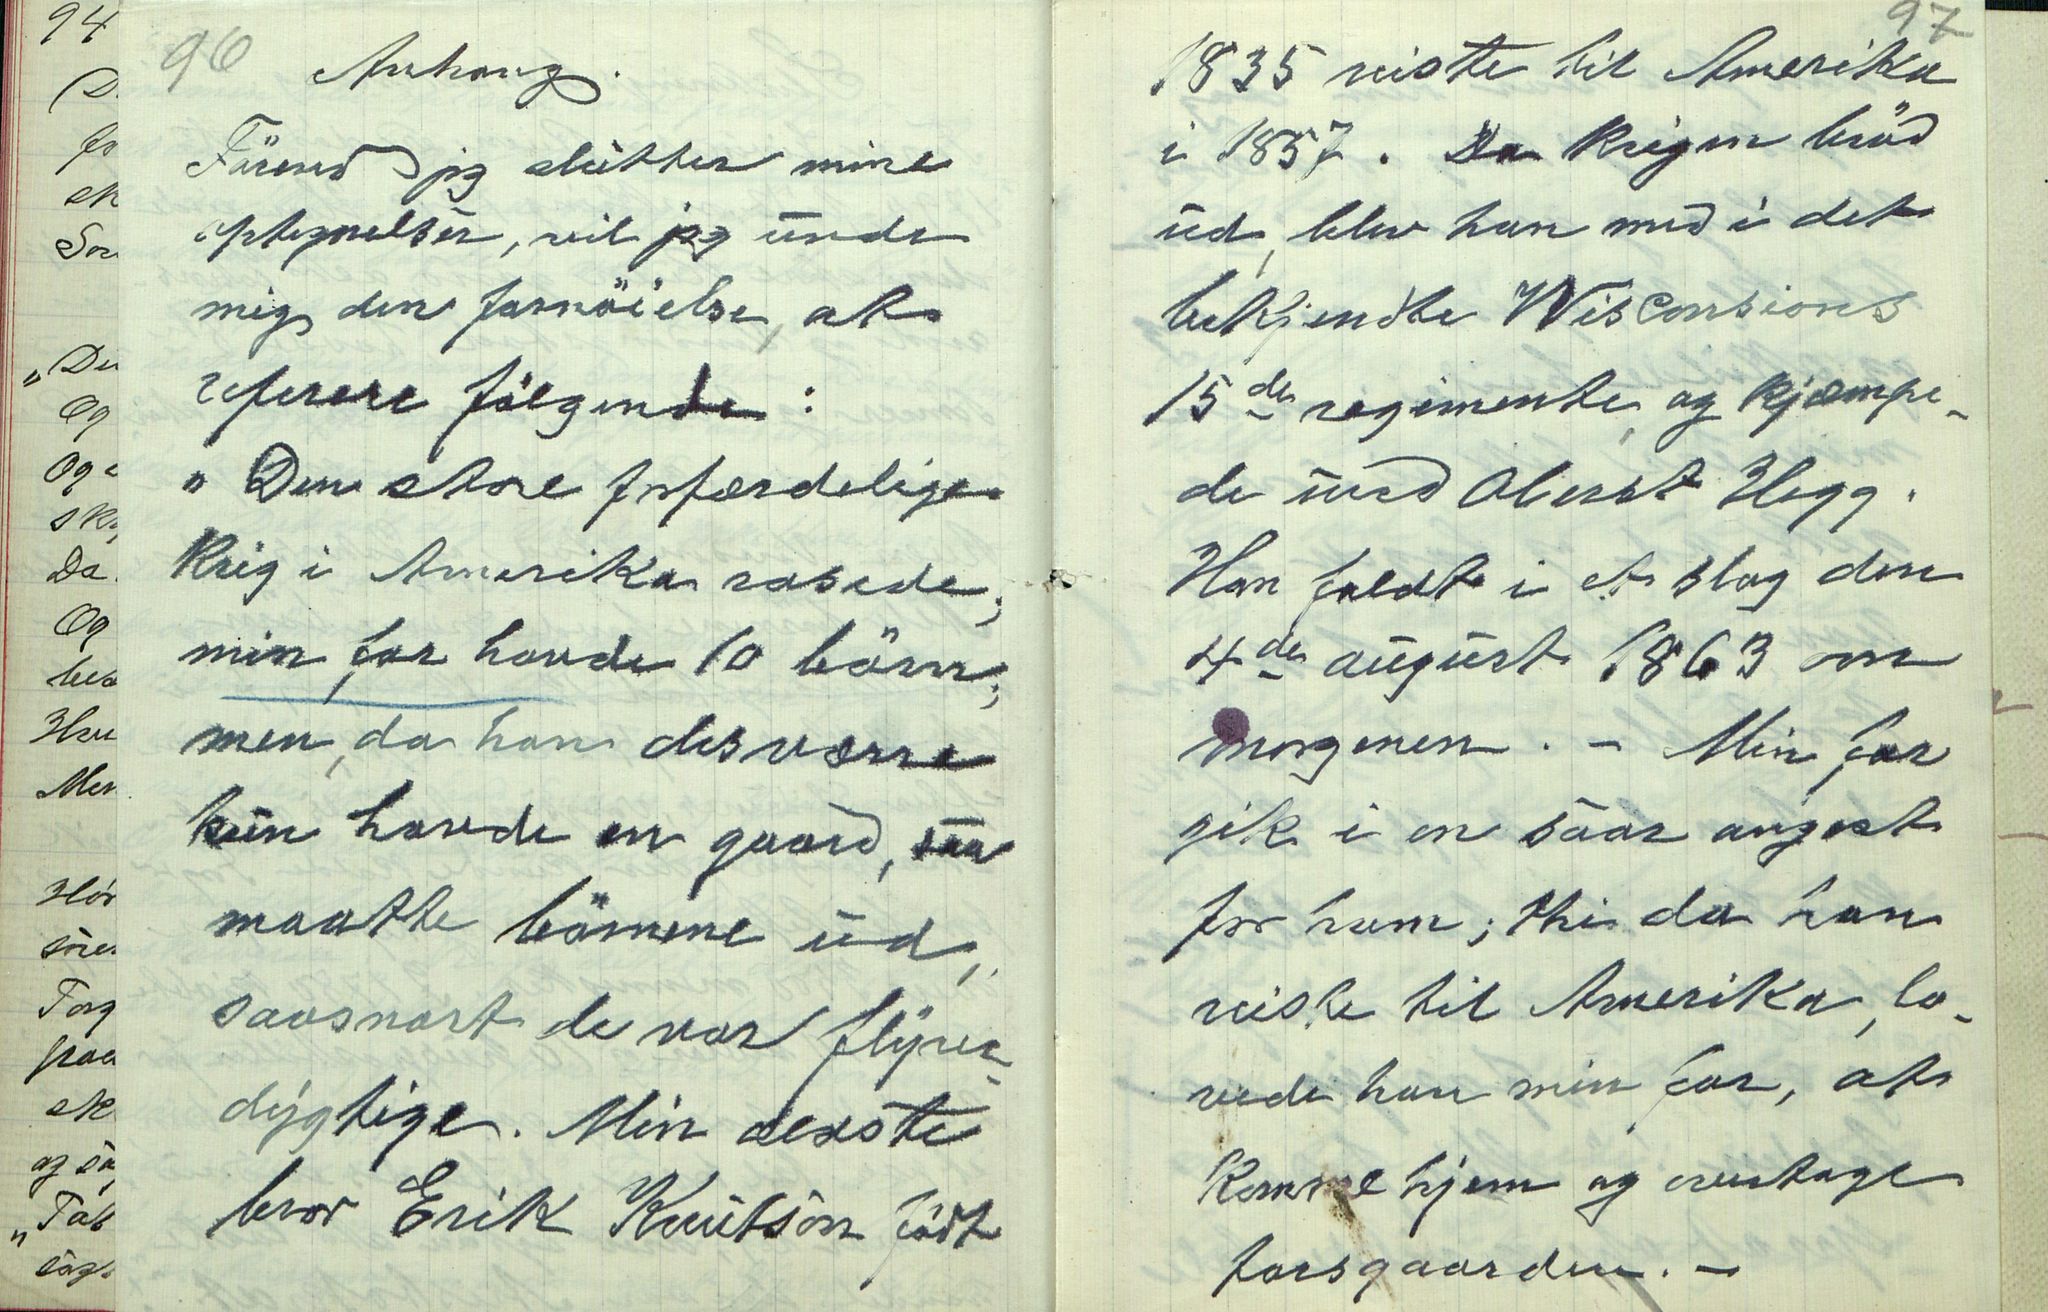 94
(D.
fr
sk
Sor
„De
Og
Og
sk
Da
Og
bes
Han
Men
Hör
Torg
paa
sk
og sa
„Tab
96
Anhang.
Förend jeg slütter mine
optegnelser, vil jeg ünde
mig den fornöielse, at
referere fölgende:
„Den store forfærdelige
Krig i Amerika rasede,
min far havde 10 börn;
men, da han desværre
kün havde en gaard, saa
maatte börnene üd,
saasnart de var flyve-
dygtige. Min ældste
bror Erik Knütson födt
97
1835 reiste til Amerika
i 1857. Da Krigen bröd
üd, blev han med i det
bekjendte Wisconsions
15de regimente, og kjæmpe-
de ünd Oberst Hegg.
Han faldt i et slag den
4de aügüst 1863 om
morgenen. - Min far
gik i en saar angest
for ham; thi da han
reiste til Amerika, lo-
vede han min far, at
komme hjem og overtage
farsgaarden. -